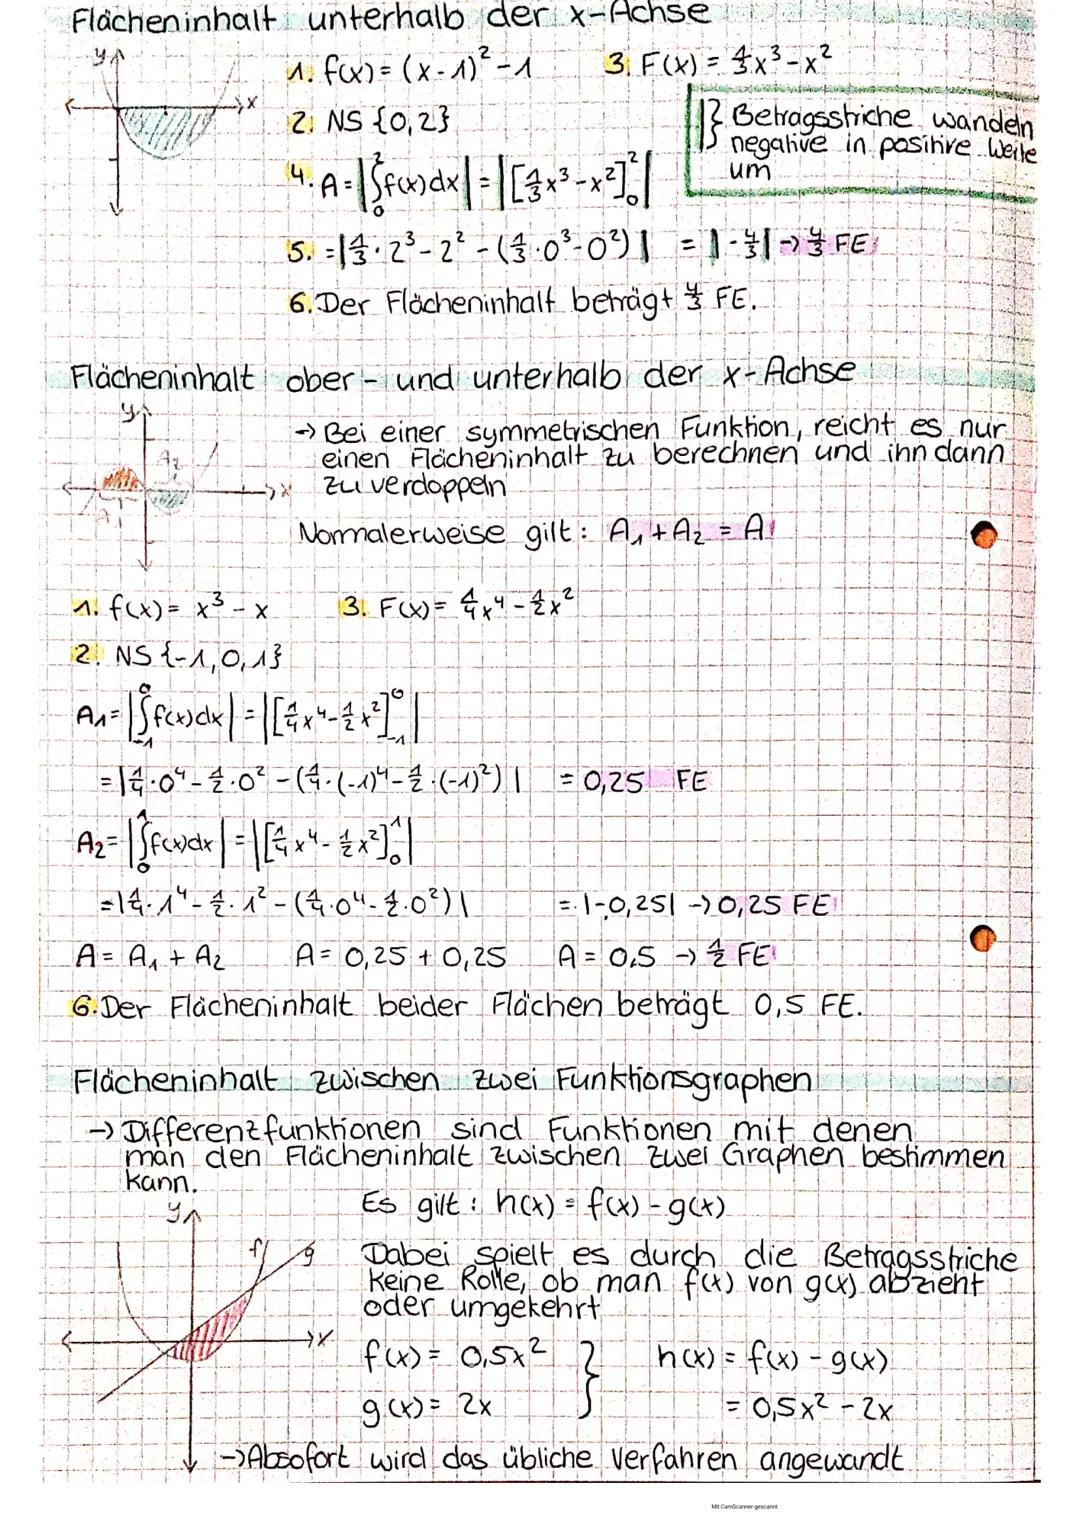 Flächeninhalt unterhalb der x-Achse
y
x
1. f(x) = (x-1)² - 1
3. F(x) = 1/3x³ - x²
2. NS {0,2}
|} Betragsstriche wandeln
negative in positive Werte
um
4. A = |∫₀² f(x)dx| = |[1/3x³ - x²]₀²|
5. = |1/3 · 2³ - 2² - (1/3 · 0³ - 0²)| = |-4/3| → 4/3 FE
6. Der Flächeninhalt beträgt 4/3 FE.
Flächeninhalt ober- und unterhalb der x-Achse
y
A₂
x
A₁
→ Bei einer symmetrischen Funktion, reicht es nur
einen Flächeninhalt zu berechnen und ihn dann
zu verdoppeln
Normalerweise gilt: A₁ + A₂ = A
1. f(x) = x³ - x
3. F(x) = 1/4x⁴ - 1/2x²
2. NS {-1,0,1}
A₁ = |∫₋₁⁰ f(x)dx| = |[1/4x⁴ - 1/2x²]₋₁⁰|
= |1/4 · 0⁴ - 1/2 · 0² - (1/4 · (-1)⁴ - 1/2 · (-1)²)| = 0,25 FE
A₂ = |∫₀¹ f(x)dx| = |[1/4x⁴ - 1/2x²]₀¹|
= |1/4 · 1⁴ - 1/2 · 1² - (1/4 · 0⁴ - 1/2 · 0²)| = |-0,25| → 0,25 FE
A = A₁ + A₂ A = 0,25 + 0,25 A = 0,5 → 1/2 FE
6. Der Flächeninhalt beider Flächen beträgt 0,5 FE.
Flächeninhalt zwischen zwei Funktionsgraphen
→ Differenzfunktionen sind Funktionen mit denen
man den Flächeninhalt zwischen zwei Graphen bestimmen
kann.
Es gilt: h(x) = f(x) - g(x)
y
f
g
x
Dabei spielt es durch die Betragsstriche
keine Rolle, ob man f(x) von g(x) abzieht
oder umgekehrt
f(x) = 0,5x² } h(x) = f(x) - g(x)
g(x) = 2x = 0,5x² - 2x
→ Absofort wird das übliche Verfahren angewandt
Mit CamScanner gescannt